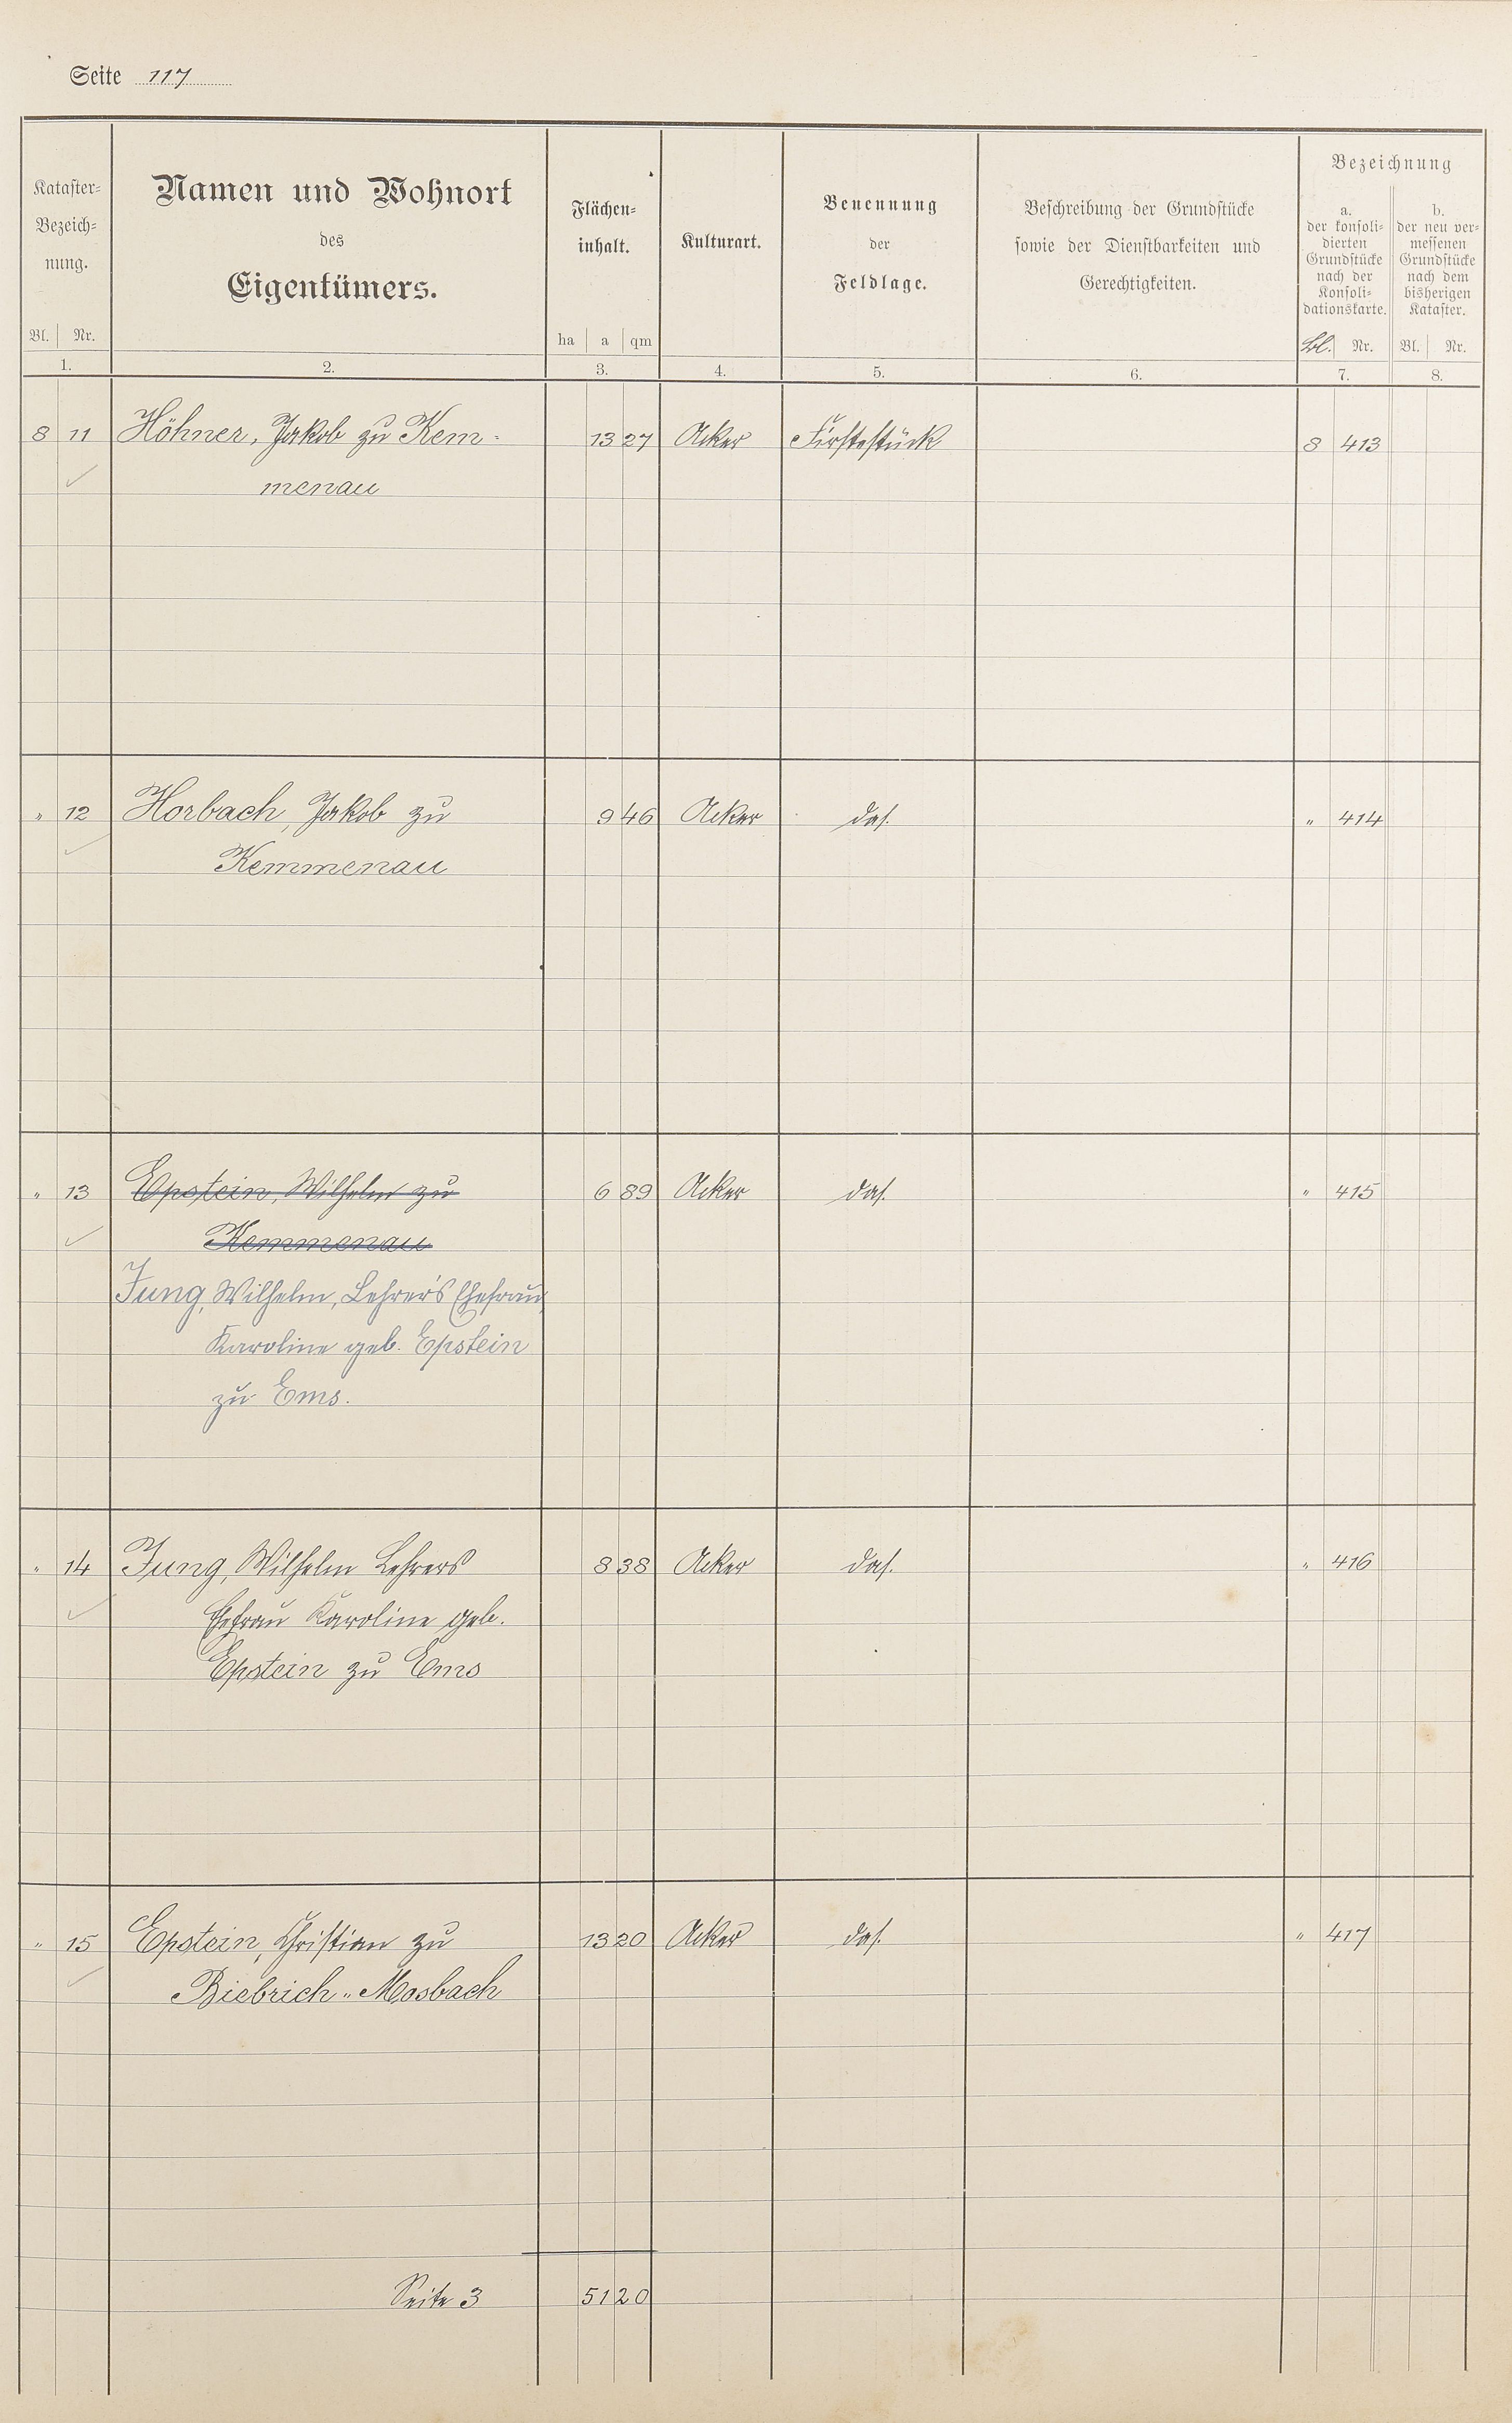 Seite 117
Kataster-
Bezeich-
nung.
Bl. Nr.
1.
Namen und Wohnort
des
Eigentümers.
2.
Flächen-
inhalt.
ha a qm
3.
Kulturart.
4.
Benennung
der
Feldlage.
5.
Beschreibung der Grundstücke
sowie der Dienstbarkeiten und
Gerechtigkeiten.
6.
Bezeichnung
a.
der konsoli-
dierten
Grundstücke
nach der
Konsoli-
dationskarte.
Bl. Nr.
7.
b.
der neu ver-
messenen
Grundstücke
nach dem
bisherigen
Kataster.
Bl. Nr.
8.
8 11 Höhner, Jakob zu Kem- 13 27 Acker Firstestück 8 413
menau
" 12 Horbach, Jakob zu 9 46 Acker das. " 414
Kemmenau
" 13 Epstein, Wilhelm zu 6 89 Acker das. " 415
Kemmenau
Jung, Wilhelm, Lehrer's Ehefrau
Karoline geb. Epstein
zu Ems.
" 14 Jung, Wilhelm Lehrers 8 38 Acker das. " 416
Ehefrau Karoline geb.
Epstein zu Ems
" 15 Epstein, Christian zu 13 20 Acker das. " 417
Biebrich-Mosbach
Seite 3 51 20